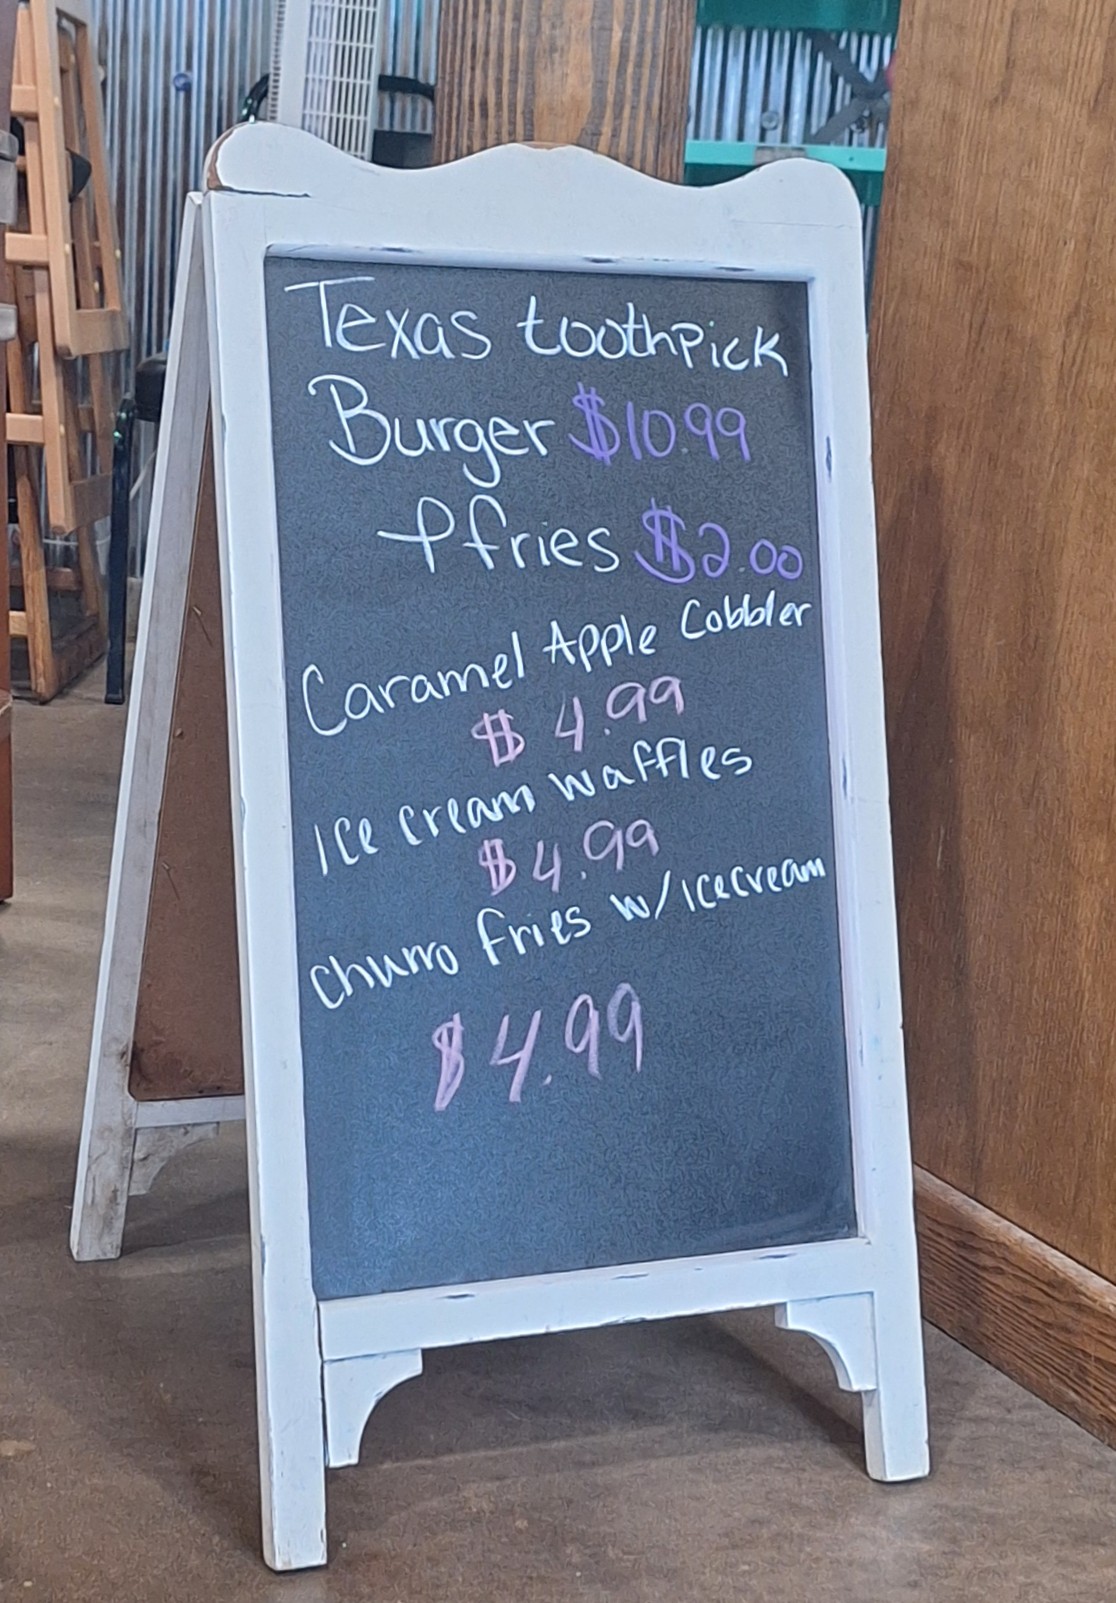 Texas toothpick
Burger $10.99
+ fries $2.00
Caramel Apple Cobbler
$4.99
Ice cream waffles
$4.99
churro fries w/icecream
$4.99